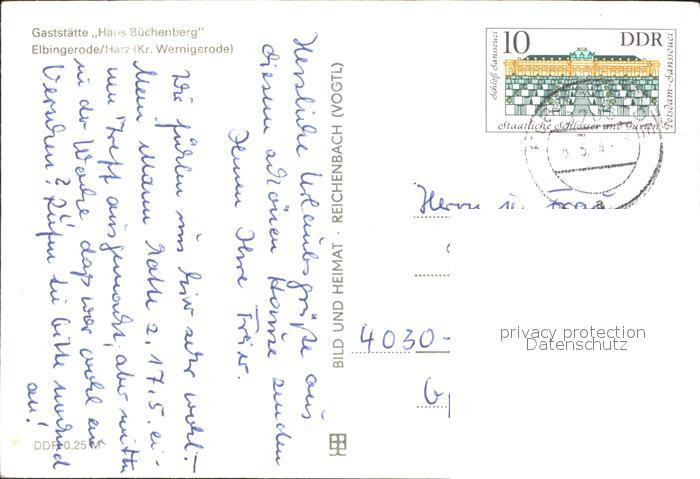 Gaststätte „Haus Büchenberg"
Elbingerode/Harz (Kr. Wernigerode)
Herzliche Urlaubsgrüße aus
diesem schönen Hause senden
Ihnen Ihre
Wir fühlen uns hier sehr wohl.
Mein Mann hatte z. 17.5. ei-
nen Treff ausgemacht, aber mitten
in der Woche, das war wohl ein
Versehen? Rufen Sie bitte nochmal
an!
DDR 0,25 M
BILD UND HEIMAT · REICHENBACH (VOGTL)
10 DDR
Schloß Sanssouci
Potsdam-Sanssouci
Staatliche Schlösser und Gärten
1983
Herrn u. Frau
4030-
privacy protection
Datenschutz